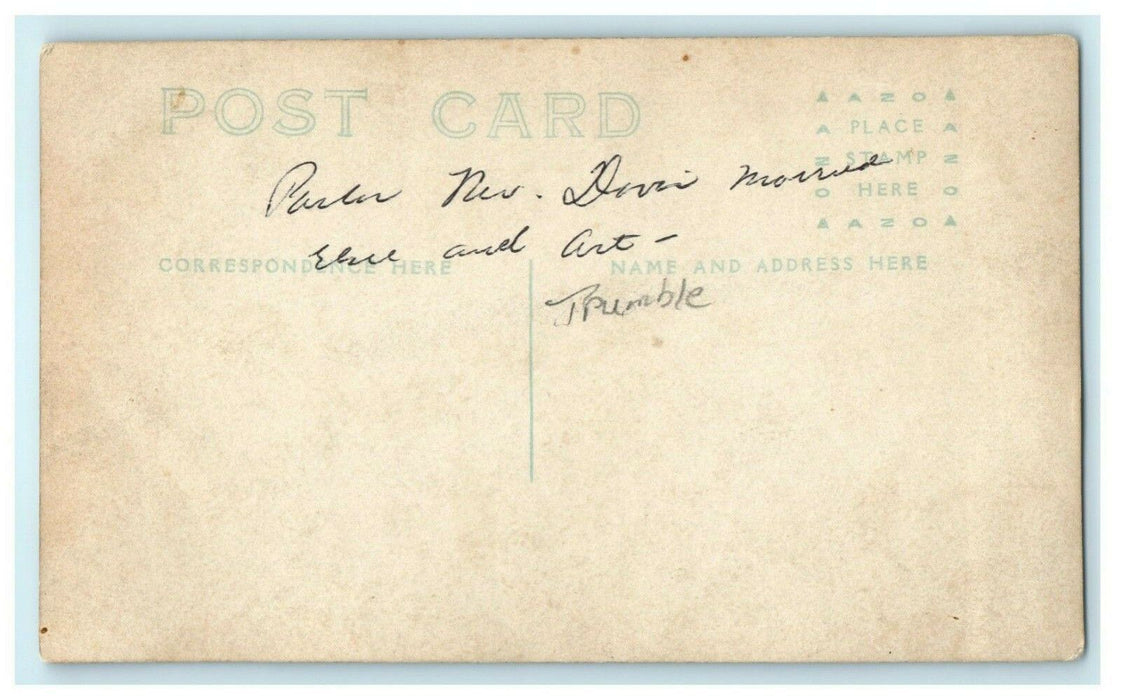 POST CARD
AZO
PLACE
STAMP
HERE
AZO
Rev. Davis married
and Art -
CORRESPONDENCE HERE
NAME AND ADDRESS HERE
Trumble